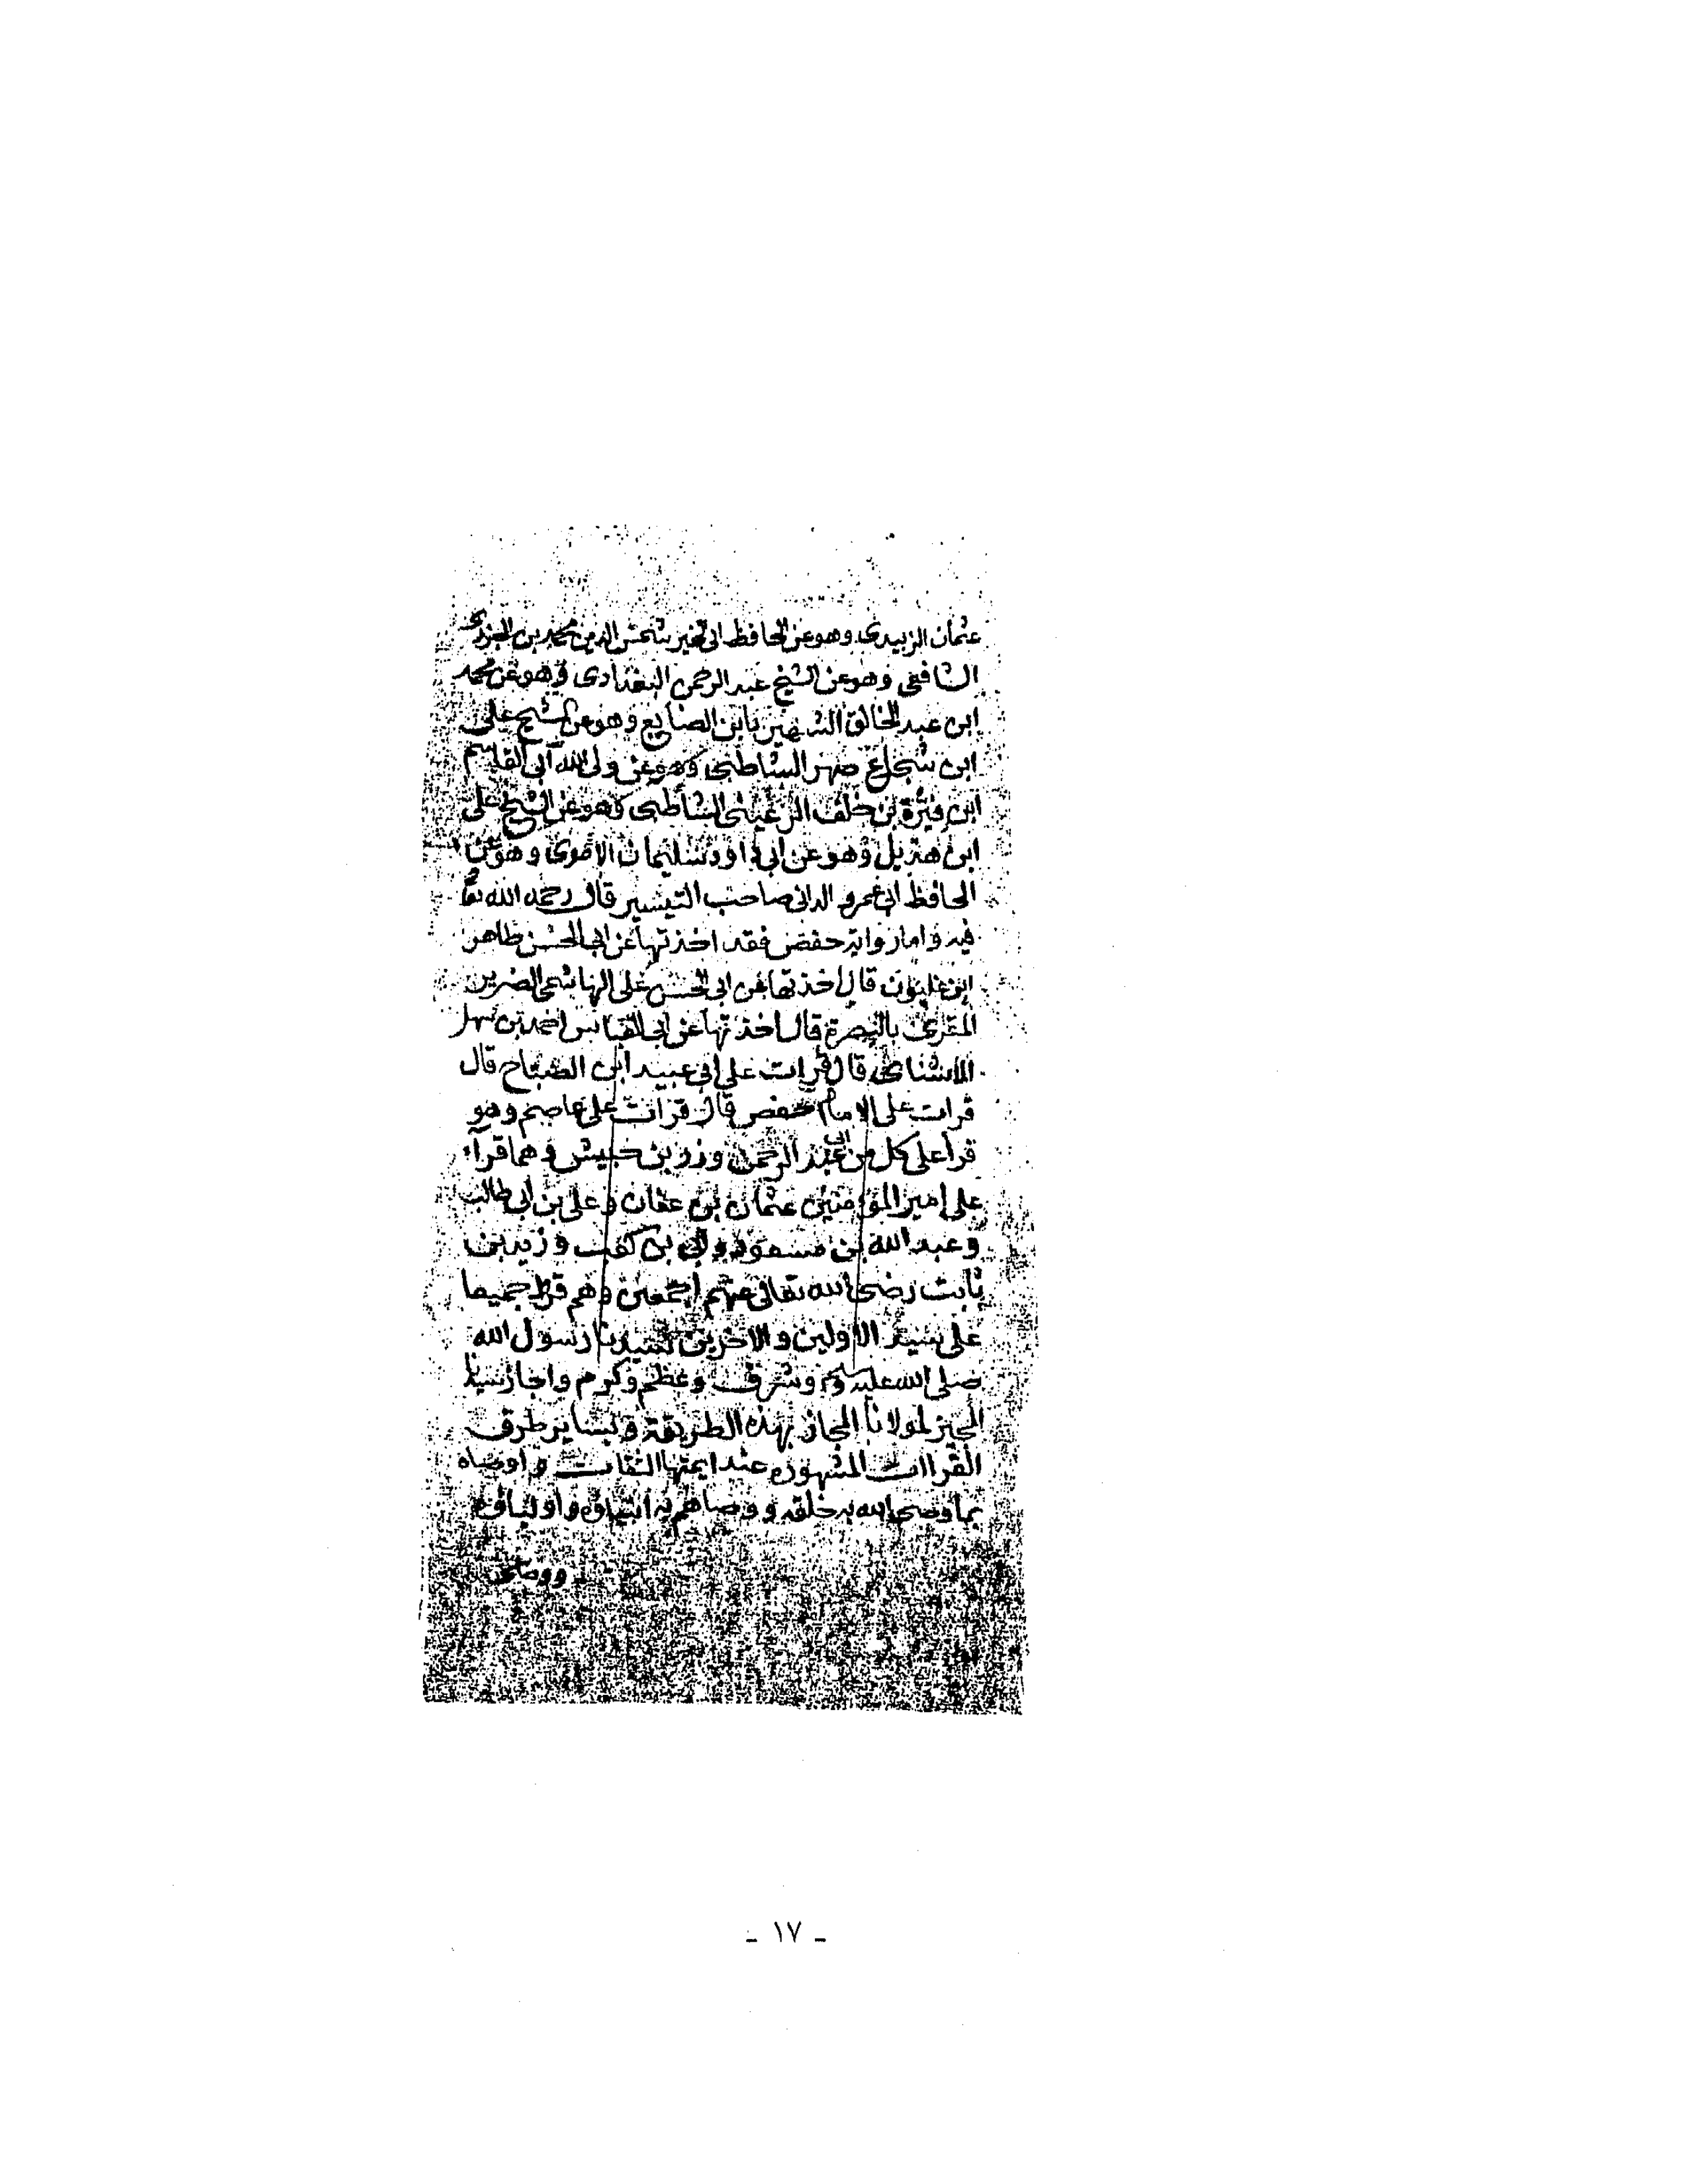 عثمان الزبيدى وهو عن الحافظ ابى الخير شمس الدين محمد بن الجزرى
الشافعى وهو عن الشيخ عبد الرحمن البغدادى وهو عن محمد
ابن عبد الخالق الشهير بابن الصايغ وهو عن الشيخ على
ابن شجاع صهر الشاطبى وهو عن ولى الله ابى القاسم
ابن فيرة بن خلف الرعينى الشاطبى وهو عن الشيخ على
ابن هذيل وهو عن ابى داود سليمان الاموى وهو عن
الحافظ ابى عمرو الدانى صاحب التيسير قال رحمه الله تعا
فيه واما رواية حفص فقد اخذتها عن ابى الحسن طاهر
ابن غلبون قال اخذتها عن ابى الحسن على الهاشمى الضرير
المقرئ بالبصرة قال اخذتها عن ابى العباس احمد بن سهل
الاشنانى قال قرات على ابى عبيد ابن الصباح قال
قرات على الامام حفص قال قرات على عاصم وهو
قرأ على كل من ابى عبد الرحمن وزر بن حبيش وهما قرآء
على امير المؤمنين عثمان بن عفان وعلى بن ابى طالب
وعبد الله بن مسعود وابى بن كعب وزيد بن
ثابت رضى الله تعالى عنهم اجمعين وهم قرؤا جميعا
على سيد الاولين والاخرين سيدنا رسول الله
صلى الله عليه وسلم وشرف وعظم وكرم واجاز سيدنا
المجيز لمولانا المجاز بهذه الطريقة وبساير طرق
القراات المشهوره عند ايمتها الثقات واوصاه
بما وصى الله به خلقه ووصاهم به انبياؤه واولياؤه
ـ ١٧ ـ